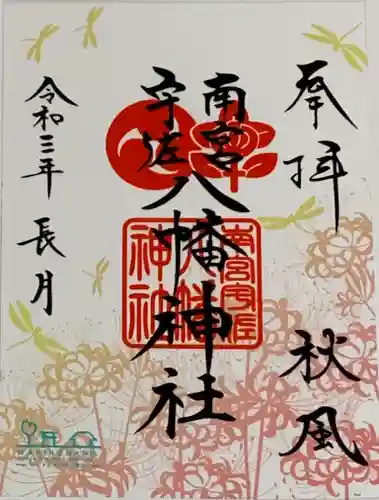 奉拝
秋風
南宮
宇佐
八幡神社
令和三年 長月
南宮宇佐
八幡
神社